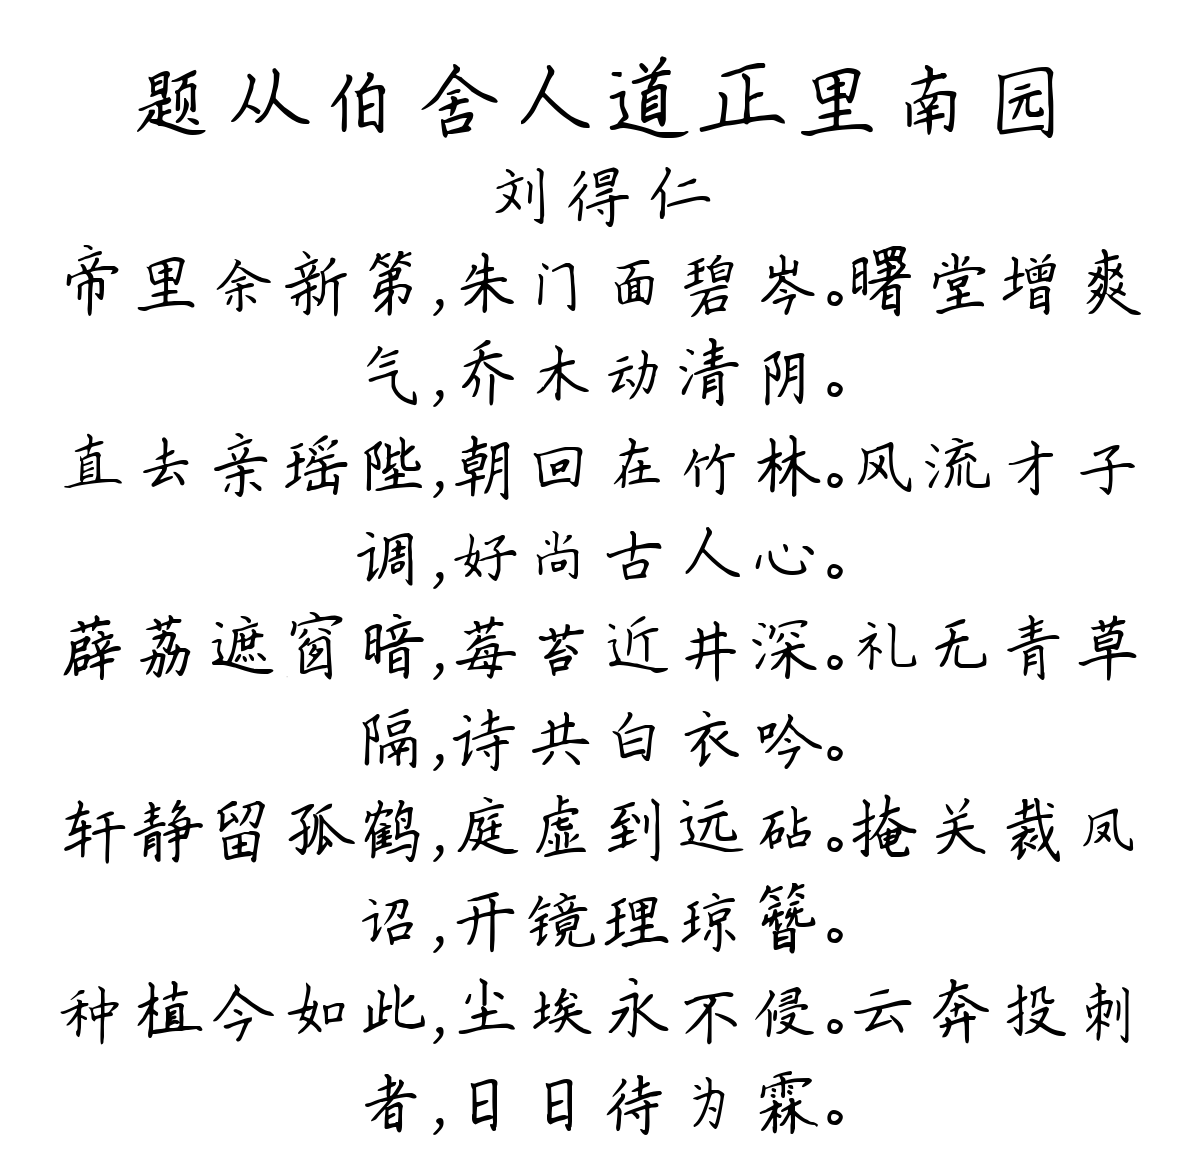 题从伯舍人道正里南园
刘得仁
帝里余新第,朱门面碧岑。曙堂增爽
气,乔木动清阴。
直去亲瑶陛,朝回在竹林。风流才子
调,好尚古人心。
薜荔遮窗暗,莓苔近井深。礼无青草
隔,诗共白衣吟。
轩静留孤鹤,庭虚到远砧。掩关裁凤
诏,开镜理琼簪。
种植今如此,尘埃永不侵。云奔投刺
者,日日待为霖。